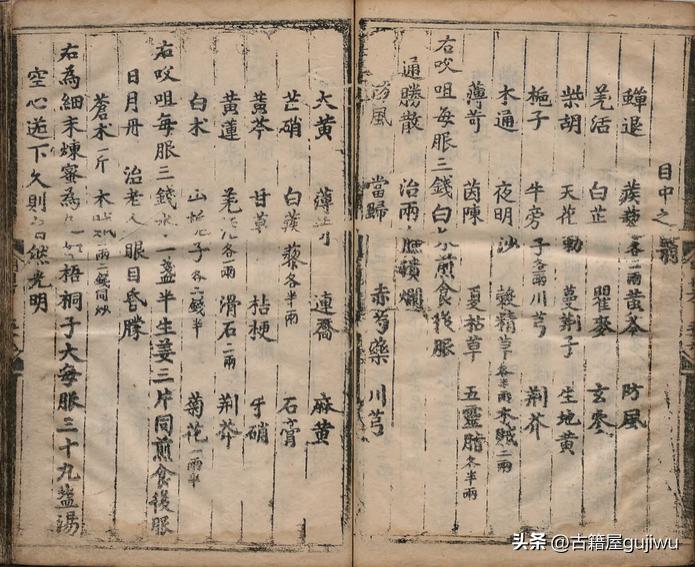 目中之翳
蟬退 蒺藜各二兩 黃芩 防風
羌活 白芷 瞿麥 玄參
柴胡 天花勳 蔓荆子 生地黃
梔子 牛旁子各兩 川芎 荆芥
木通 夜明沙 穀精草各半兩 木賊二兩
薄苛 茵陳 夏枯草 五靈脂各半兩
右㕮咀每服三錢白水煎食後服
通勝散 治兩瞼爛
防風 當歸 赤芍藥 川芎
大黃 薄 連喬 麻黃
芒硝 白蒺藜各半兩 石膏
黃芩 甘草 桔梗 牙硝
黃蓮 羌活各一兩 滑石二兩 荆芥
白术 山梔子各二錢半 菊花一兩半
右㕮咀每服三錢水一盞半生姜三片同煎食後服
日月丹 治老人眼目昏朦
蒼术一斤 木賊 二兩 同炒
右為細末煉蜜為 梧桐子大每服三十九盐湯
空心送下久則自然光明
头条 @古籍屋gujiwu